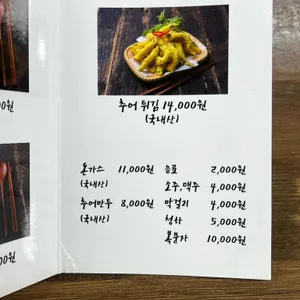 추어 튀김 14,000원
(국내산)
돈가스 11,000원
(국내산)
추어만두 8,000원
(국내산)
음료 2,000원
소주,맥주 4,000원
막걸리 4,000원
청하 5,000원
복분자 10,000원
0원
00원